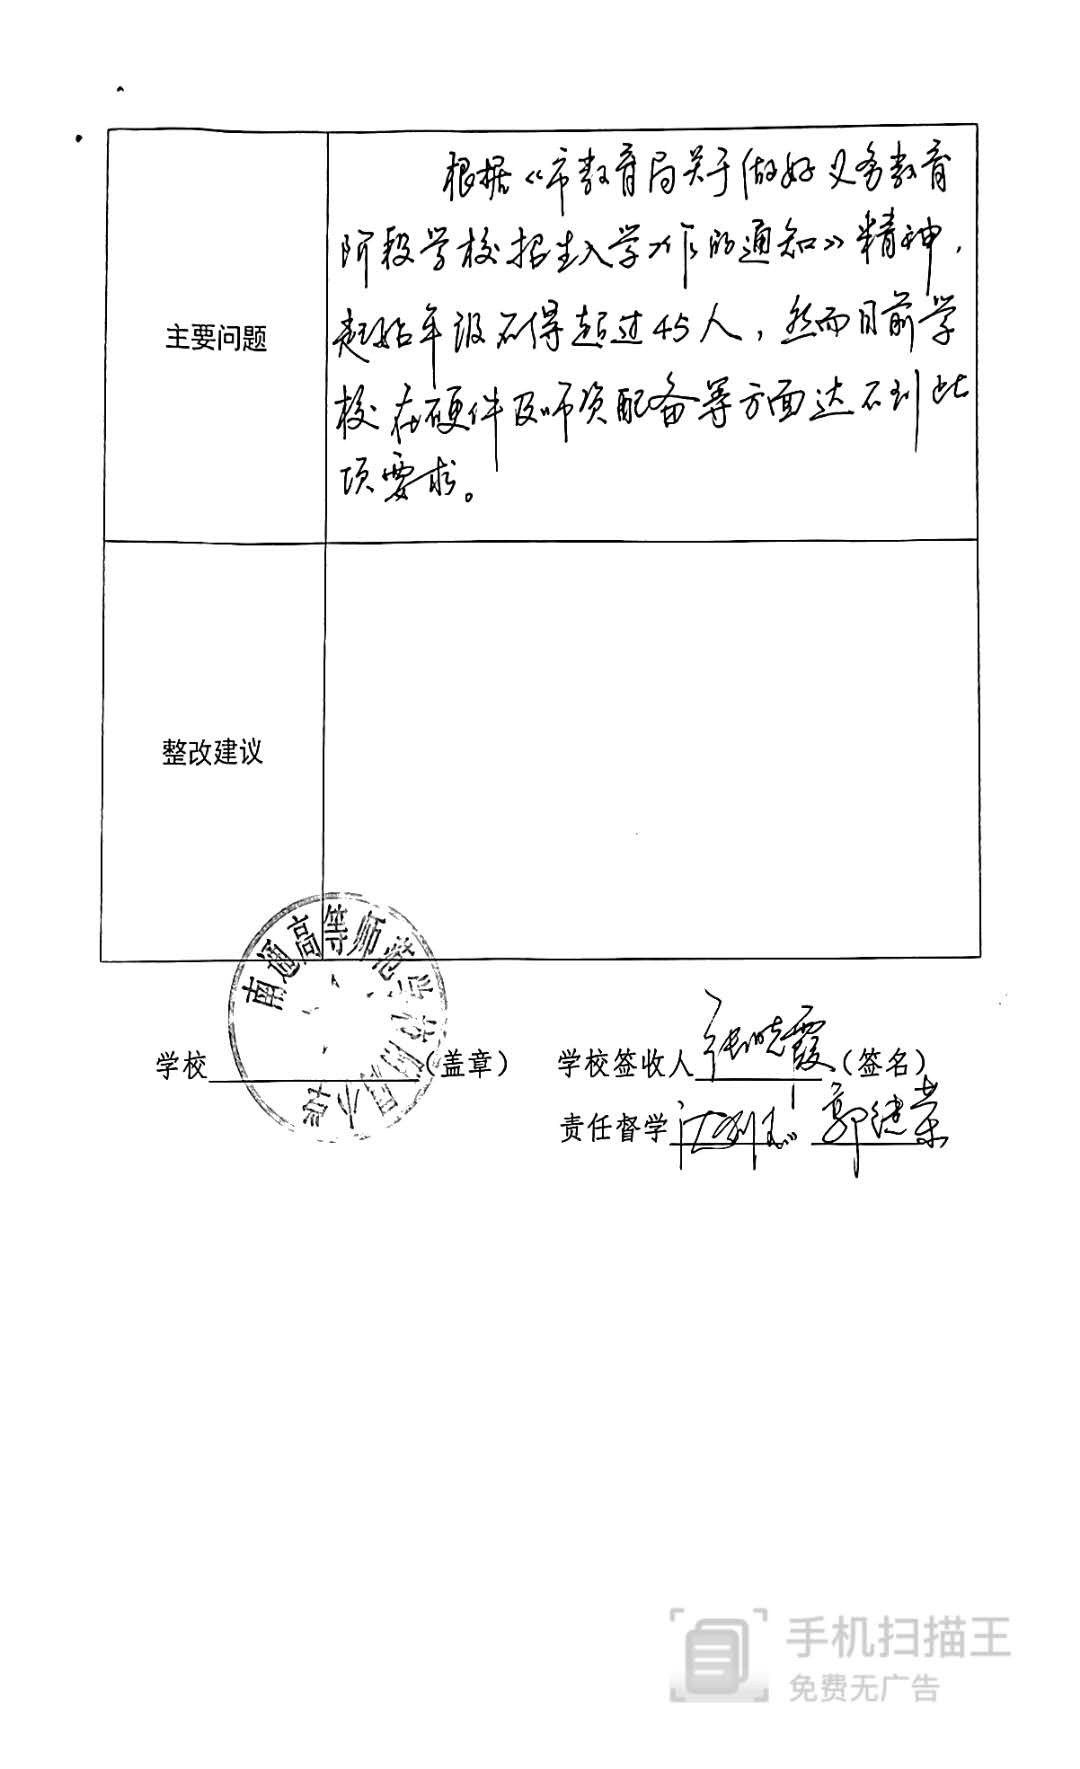 主要问题
根据《市教育局关于做好义务教育
阶段学校招生入学工作的通知》精神，
起始年级不得超过45人，然而目前学
校在硬件及师资配备等方面达不到此
项要求。
整改建议
南通高等师范学校附属小学
学校（盖章）
学校签收人 张晓霞（签名）
责任督学 郭继荣
手机扫描王
免费无广告